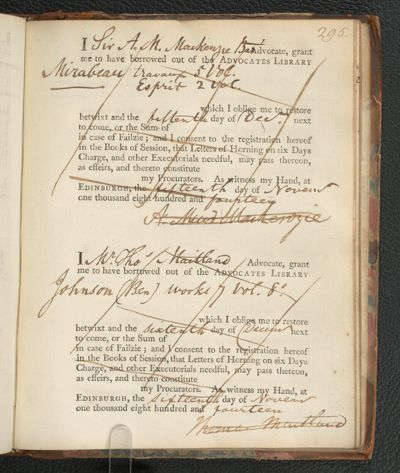 295.
I Sir A. M. Mackenzie Bart Advocate, grant
me to have borrowed out of the ADVOCATES LIBRARY
Mirabeau travaux 5 Vol.
Esprit 2 Vol.
which I oblige me to restore
betwixt and the fifteenth day of Decr. next
to come, or the Sum of
in case of Failzie; and I consent to the registration hereof
in the Books of Session, that Letters of Horning on six Days
Charge, and other Executorials needful, may pass thereon,
as effeirs, and thereto constitute
my Procurators. As witness my Hand, at
EDINBURGH, the fifteenth day of Novemr
one thousand eight hundred and fourteen
A. Muir Mackenzie
I Mr. Thos. Maitland Advocate, grant
me to have borrowed out of the ADVOCATES LIBRARY
Johnson (Ben) works 7 Vol. 8o.
which I oblige me to restore
betwixt and the sixteenth day of Decemr next
to come, or the Sum of
in case of Failzie; and I consent to the registration hereof
in the Books of Session, that Letters of Horning on six Days
Charge, and other Executorials needful, may pass thereon,
as effeirs, and thereto constitute
my Procurators. As witness my Hand, at
EDINBURGH, the sixteenth day of Novemr
one thousand eight hundred and fourteen
Thomas Maitland